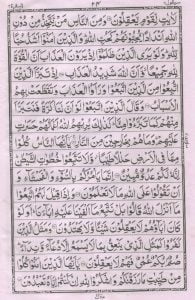 ٢٤
لَاٰیٰتٍ لِّقَوْمٍ یَّعْقِلُوْنَ ۝ وَمِنَ النَّاسِ مَنْ یَّتَّخِذُ مِنْ دُوْنِ
اللّٰهِ اَنْدَادًا یُّحِبُّوْنَهُمْ كَحُبِّ اللّٰهِ وَالَّذِیْنَ اٰمَنُوْۤا اَشَدُّ حُبًّا
لِّلّٰهِ وَلَوْ یَرَی الَّذِیْنَ ظَلَمُوْۤا اِذْ یَرَوْنَ الْعَذَابَ اَنَّ الْقُوَّةَ
لِلّٰهِ جَمِیْعًا وَّاَنَّ اللّٰهَ شَدِیْدُ الْعَذَابِ ۝ اِذْ تَبَرَّاَ الَّذِیْنَ
اتُّبِعُوْا مِنَ الَّذِیْنَ اتَّبَعُوْا وَرَاَوُا الْعَذَابَ وَتَقَطَّعَتْ بِهِمُ
الْاَسْبَابُ ۝ وَقَالَ الَّذِیْنَ اتَّبَعُوْا لَوْ اَنَّ لَنَا كَرَّةً فَنَتَبَرَّاَ
مِنْهُمْ كَمَا تَبَرَّءُوْا مِنَّا كَذٰلِكَ یُرِیْهِمُ اللّٰهُ اَعْمَالَهُمْ حَسَرٰتٍ
عَلَیْهِمْ وَمَا هُمْ بِخٰرِجِیْنَ مِنَ النَّارِ ۝ یٰۤاَیُّهَا النَّاسُ كُلُوْا
مِمَّا فِی الْاَرْضِ حَلٰلًا طَیِّبًا وَّلَا تَتَّبِعُوْا خُطُوٰتِ الشَّیْطٰنِ
اِنَّهٗ لَكُمْ عَدُوٌّ مُّبِیْنٌ ۝ اِنَّمَا یَاْمُرُكُمْ بِالسُّوْٓءِ وَالْفَحْشَآءِ وَاَنْ
تَقُوْلُوْا عَلَی اللّٰهِ مَا لَا تَعْلَمُوْنَ ۝ وَاِذَا قِیْلَ لَهُمُ اتَّبِعُوْا
مَاۤ اَنْزَلَ اللّٰهُ قَالُوْا بَلْ نَتَّبِعُ مَاۤ اَلْفَیْنَا عَلَیْهِ اٰبَآءَنَا اَوَلَوْ
كَانَ اٰبَآؤُهُمْ لَا یَعْقِلُوْنَ شَیْـًٔا وَّلَا یَهْتَدُوْنَ ۝ وَمَثَلُ الَّذِیْنَ
كَفَرُوْا كَمَثَلِ الَّذِیْ یَنْعِقُ بِمَا لَا یَسْمَعُ اِلَّا دُعَآءً وَّنِدَآءً
صُمٌّۢ بُكْمٌ عُمْیٌ فَهُمْ لَا یَعْقِلُوْنَ ۝ یٰۤاَیُّهَا الَّذِیْنَ اٰمَنُوْا كُلُوْا
مِنْ طَیِّبٰتِ مَا رَزَقْنٰكُمْ وَاشْكُرُوْا لِلّٰهِ اِنْ كُنْتُمْ اِیَّاهُ تَعْبُدُوْنَ